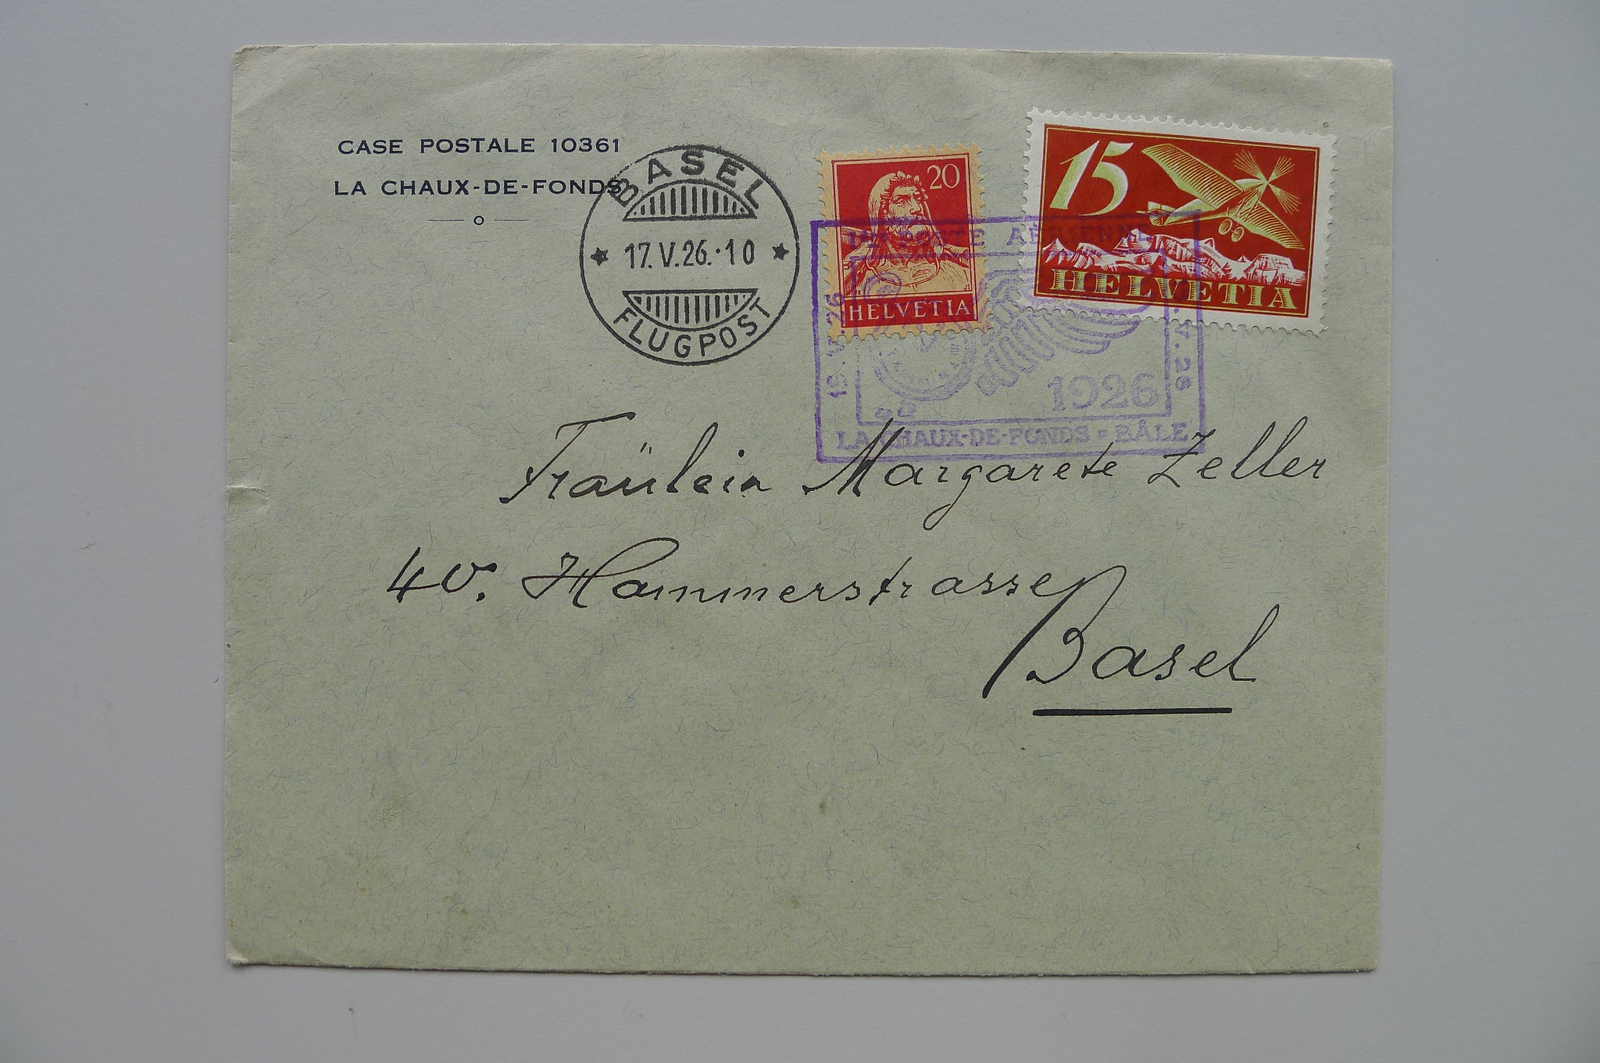 CASE POSTALE 10361
LA CHAUX-DE-FONDS
BASEL
17.V.26.·10
FLUGPOST
20
HELVETIA
15
HELVETIA
POSTE AÉRIENNE
1926
LA CHAUX-DE-FONDS = BÂLE
Fräulein Margarete Zeller
40. Hammerstrasse
Basel